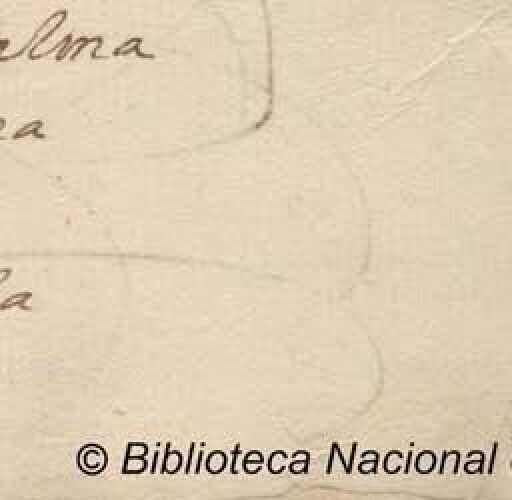 alma
a
la
© Biblioteca Nacional